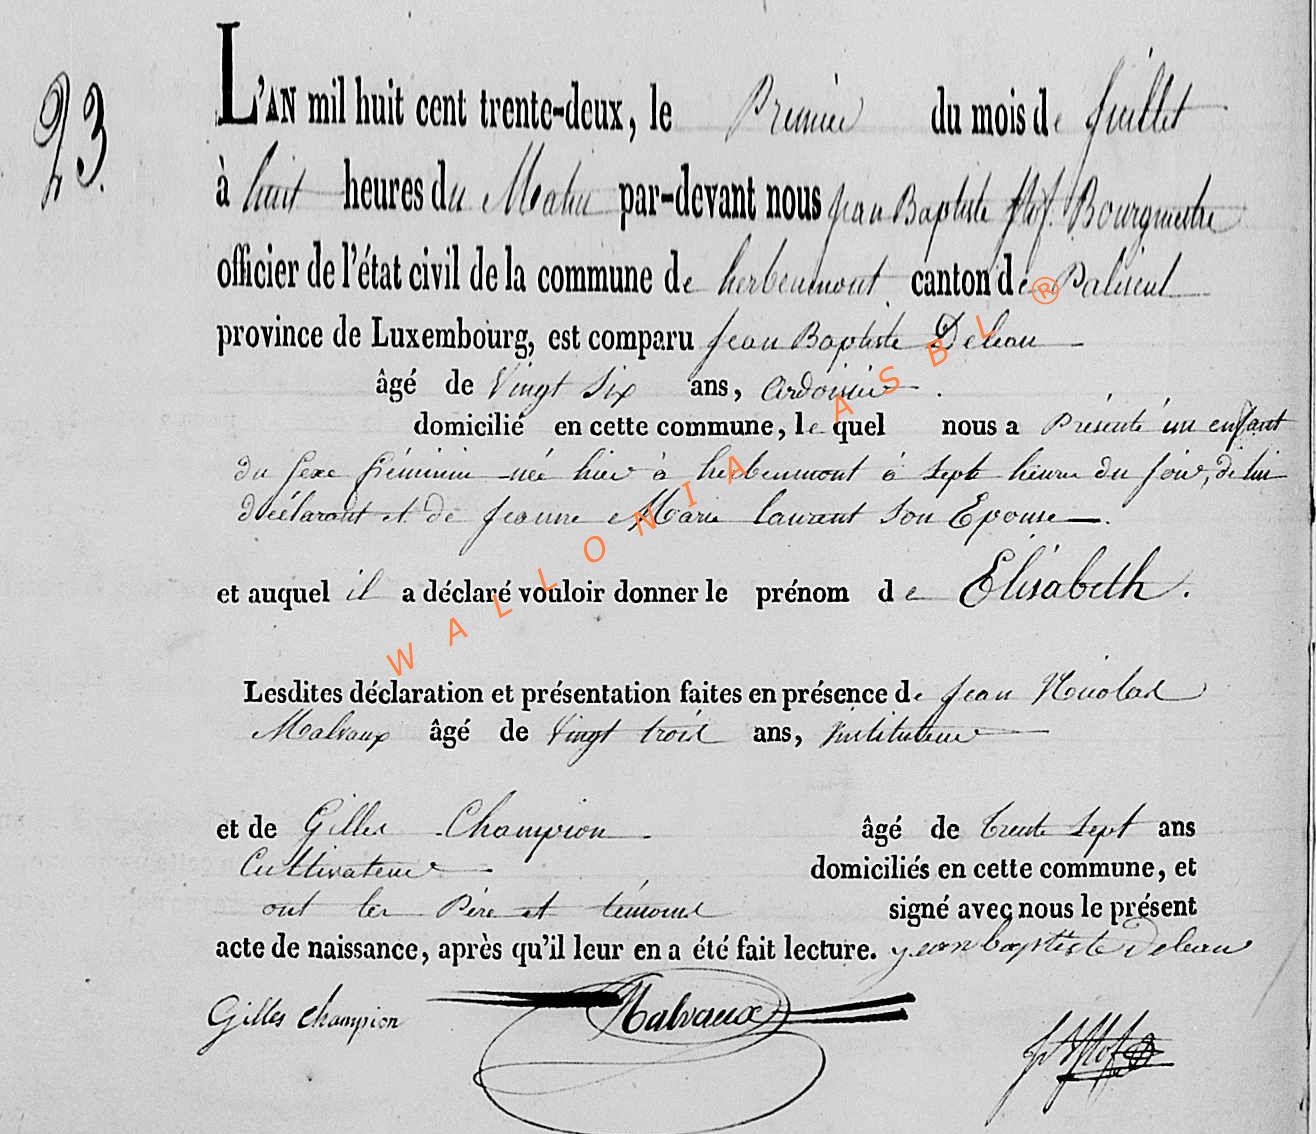 23.
L'AN mil huit cent trente-deux, le Premier du mois de Juillet
à huit heures du Matin par-devant nous Jean Baptiste Bourgmestre
officier de l'état civil de la commune de herbeumont canton de Paliseul
province de Luxembourg, est comparu Jean Baptiste Deleau
âgé de Vingt Six ans, ardoisier
domicilié en cette commune, lequel nous a Présenté un enfant
du sexe féminin née hier à herbeumont à sept heures du soir, de lui
déclarant et de Jeanne Marie laurent son Epouse.
et auquel il a déclaré vouloir donner le prénom de Elisabeth.
Lesdites déclaration et présentation faites en présence de Jean Nicolas
Malvaux âgé de vingt trois ans, instituteur
et de Gilles Champion âgé de trente sept ans
Cultivateur domiciliés en cette commune, et
ont les Père et témoins signé avec nous le présent
acte de naissance, après qu'il leur en a été fait lecture. jean baptiste Deleau
Gilles champion Malvaux
WALLONIA ASBL ®